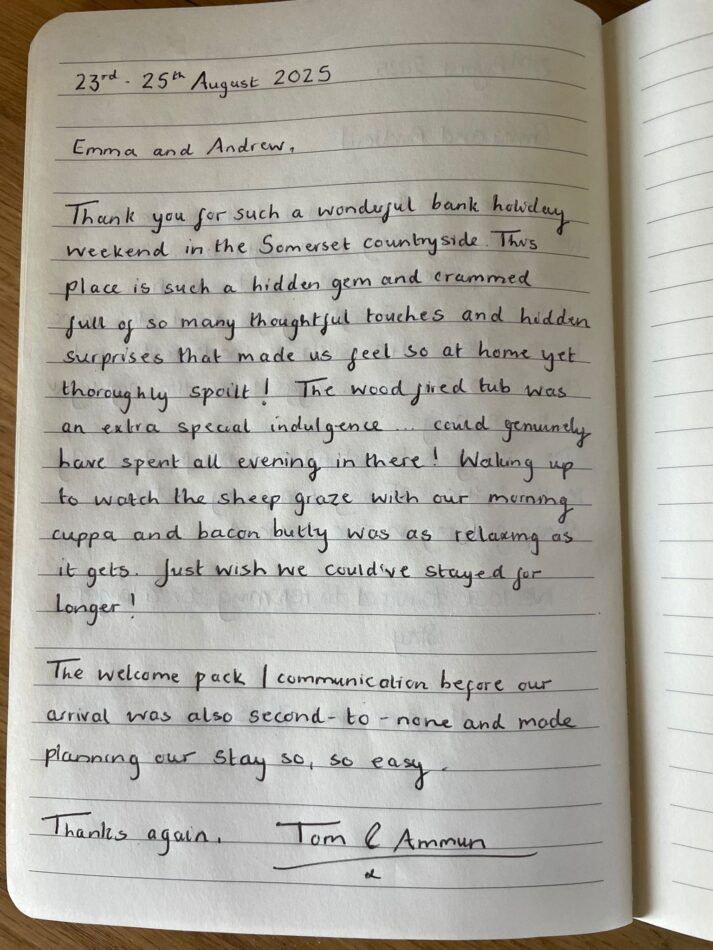 23rd - 25th August 2025
Emma and Andrew,
Thank you for such a wonderful bank holiday
weekend in the Somerset countryside. This
place is such a hidden gem and crammed
full of so many thoughtful touches and hidden
surprises that made us feel so at home yet
thoroughly spoilt! The wood fired tub was
an extra special indulgence ... could genuinely
have spent all evening in there! Waking up
to watch the sheep graze with our morning
cuppa and bacon butty was as relaxing as
it gets. Just wish we could've stayed for
longer!
The welcome pack / communication before our
arrival was also second-to-none and made
planning our stay so, so easy.
Thanks again, Tom & Ammun